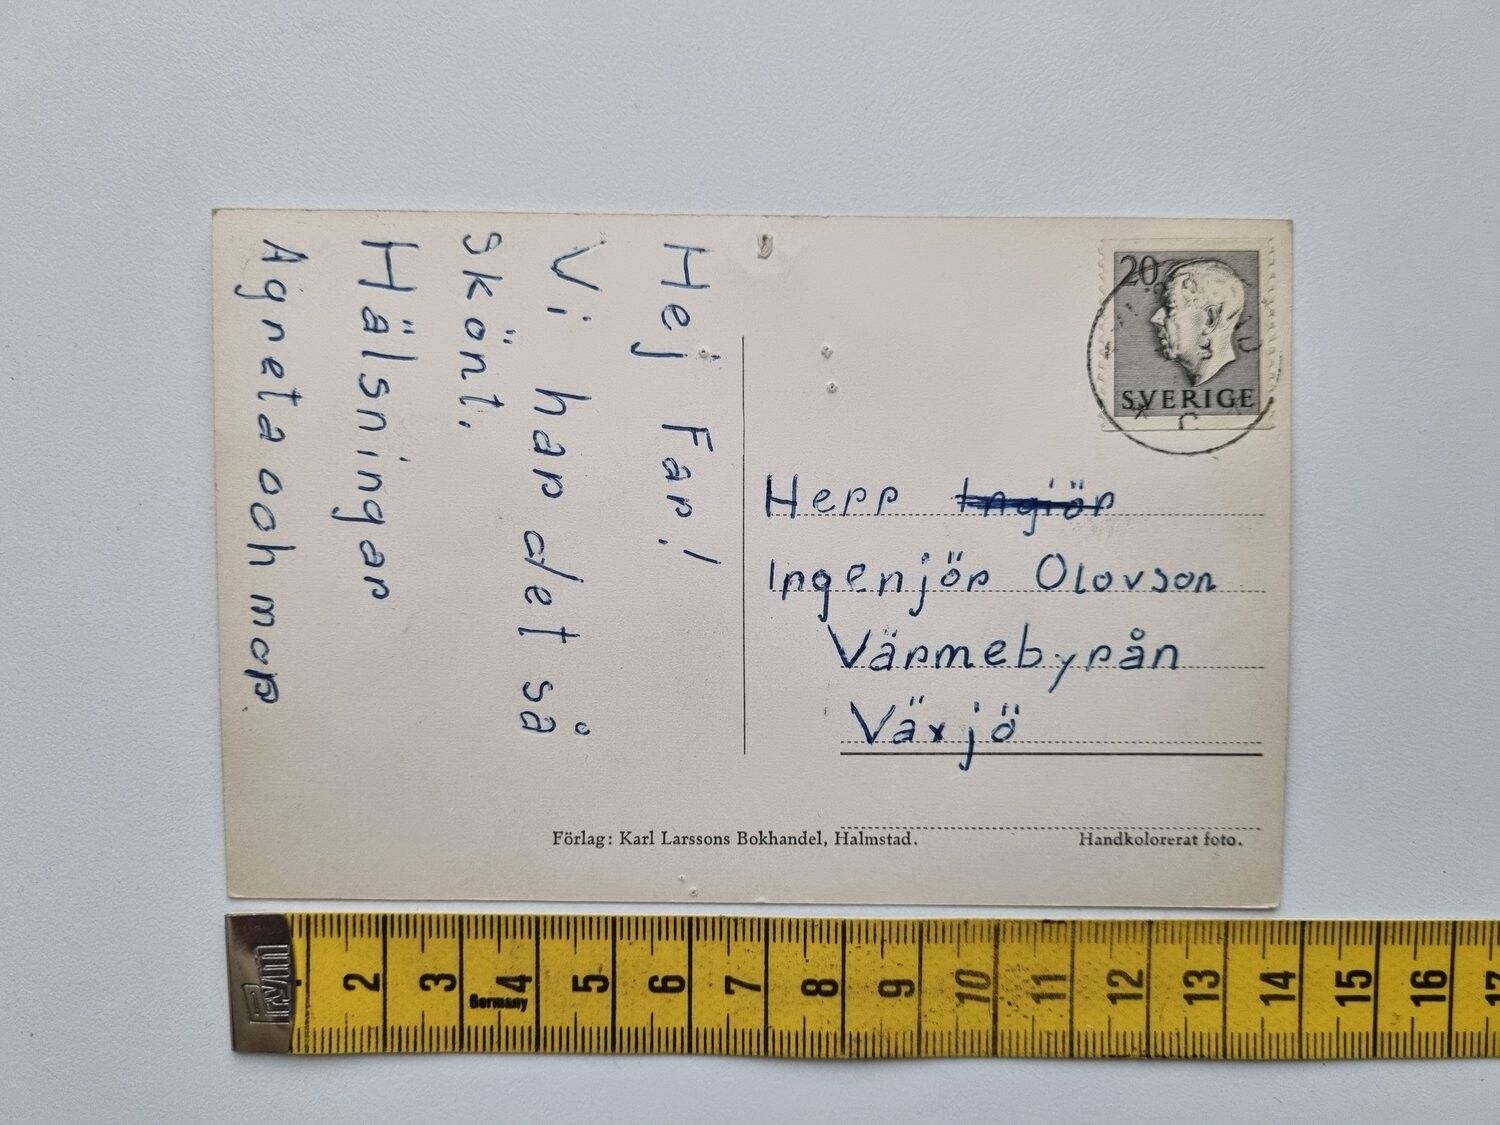 Hej Far!
Vi har det så
skönt.
Hälsningar
Agneta och mor
20
SVERIGE
Herr Ingiör
Ingenjör Olovson
Värmebyrån
Växjö
Förlag: Karl Larssons Bokhandel, Halmstad.
Handkolorerat foto.
2 3 4 5 6 7 8 9 10 11 12 13 14 15 16 17
Germany